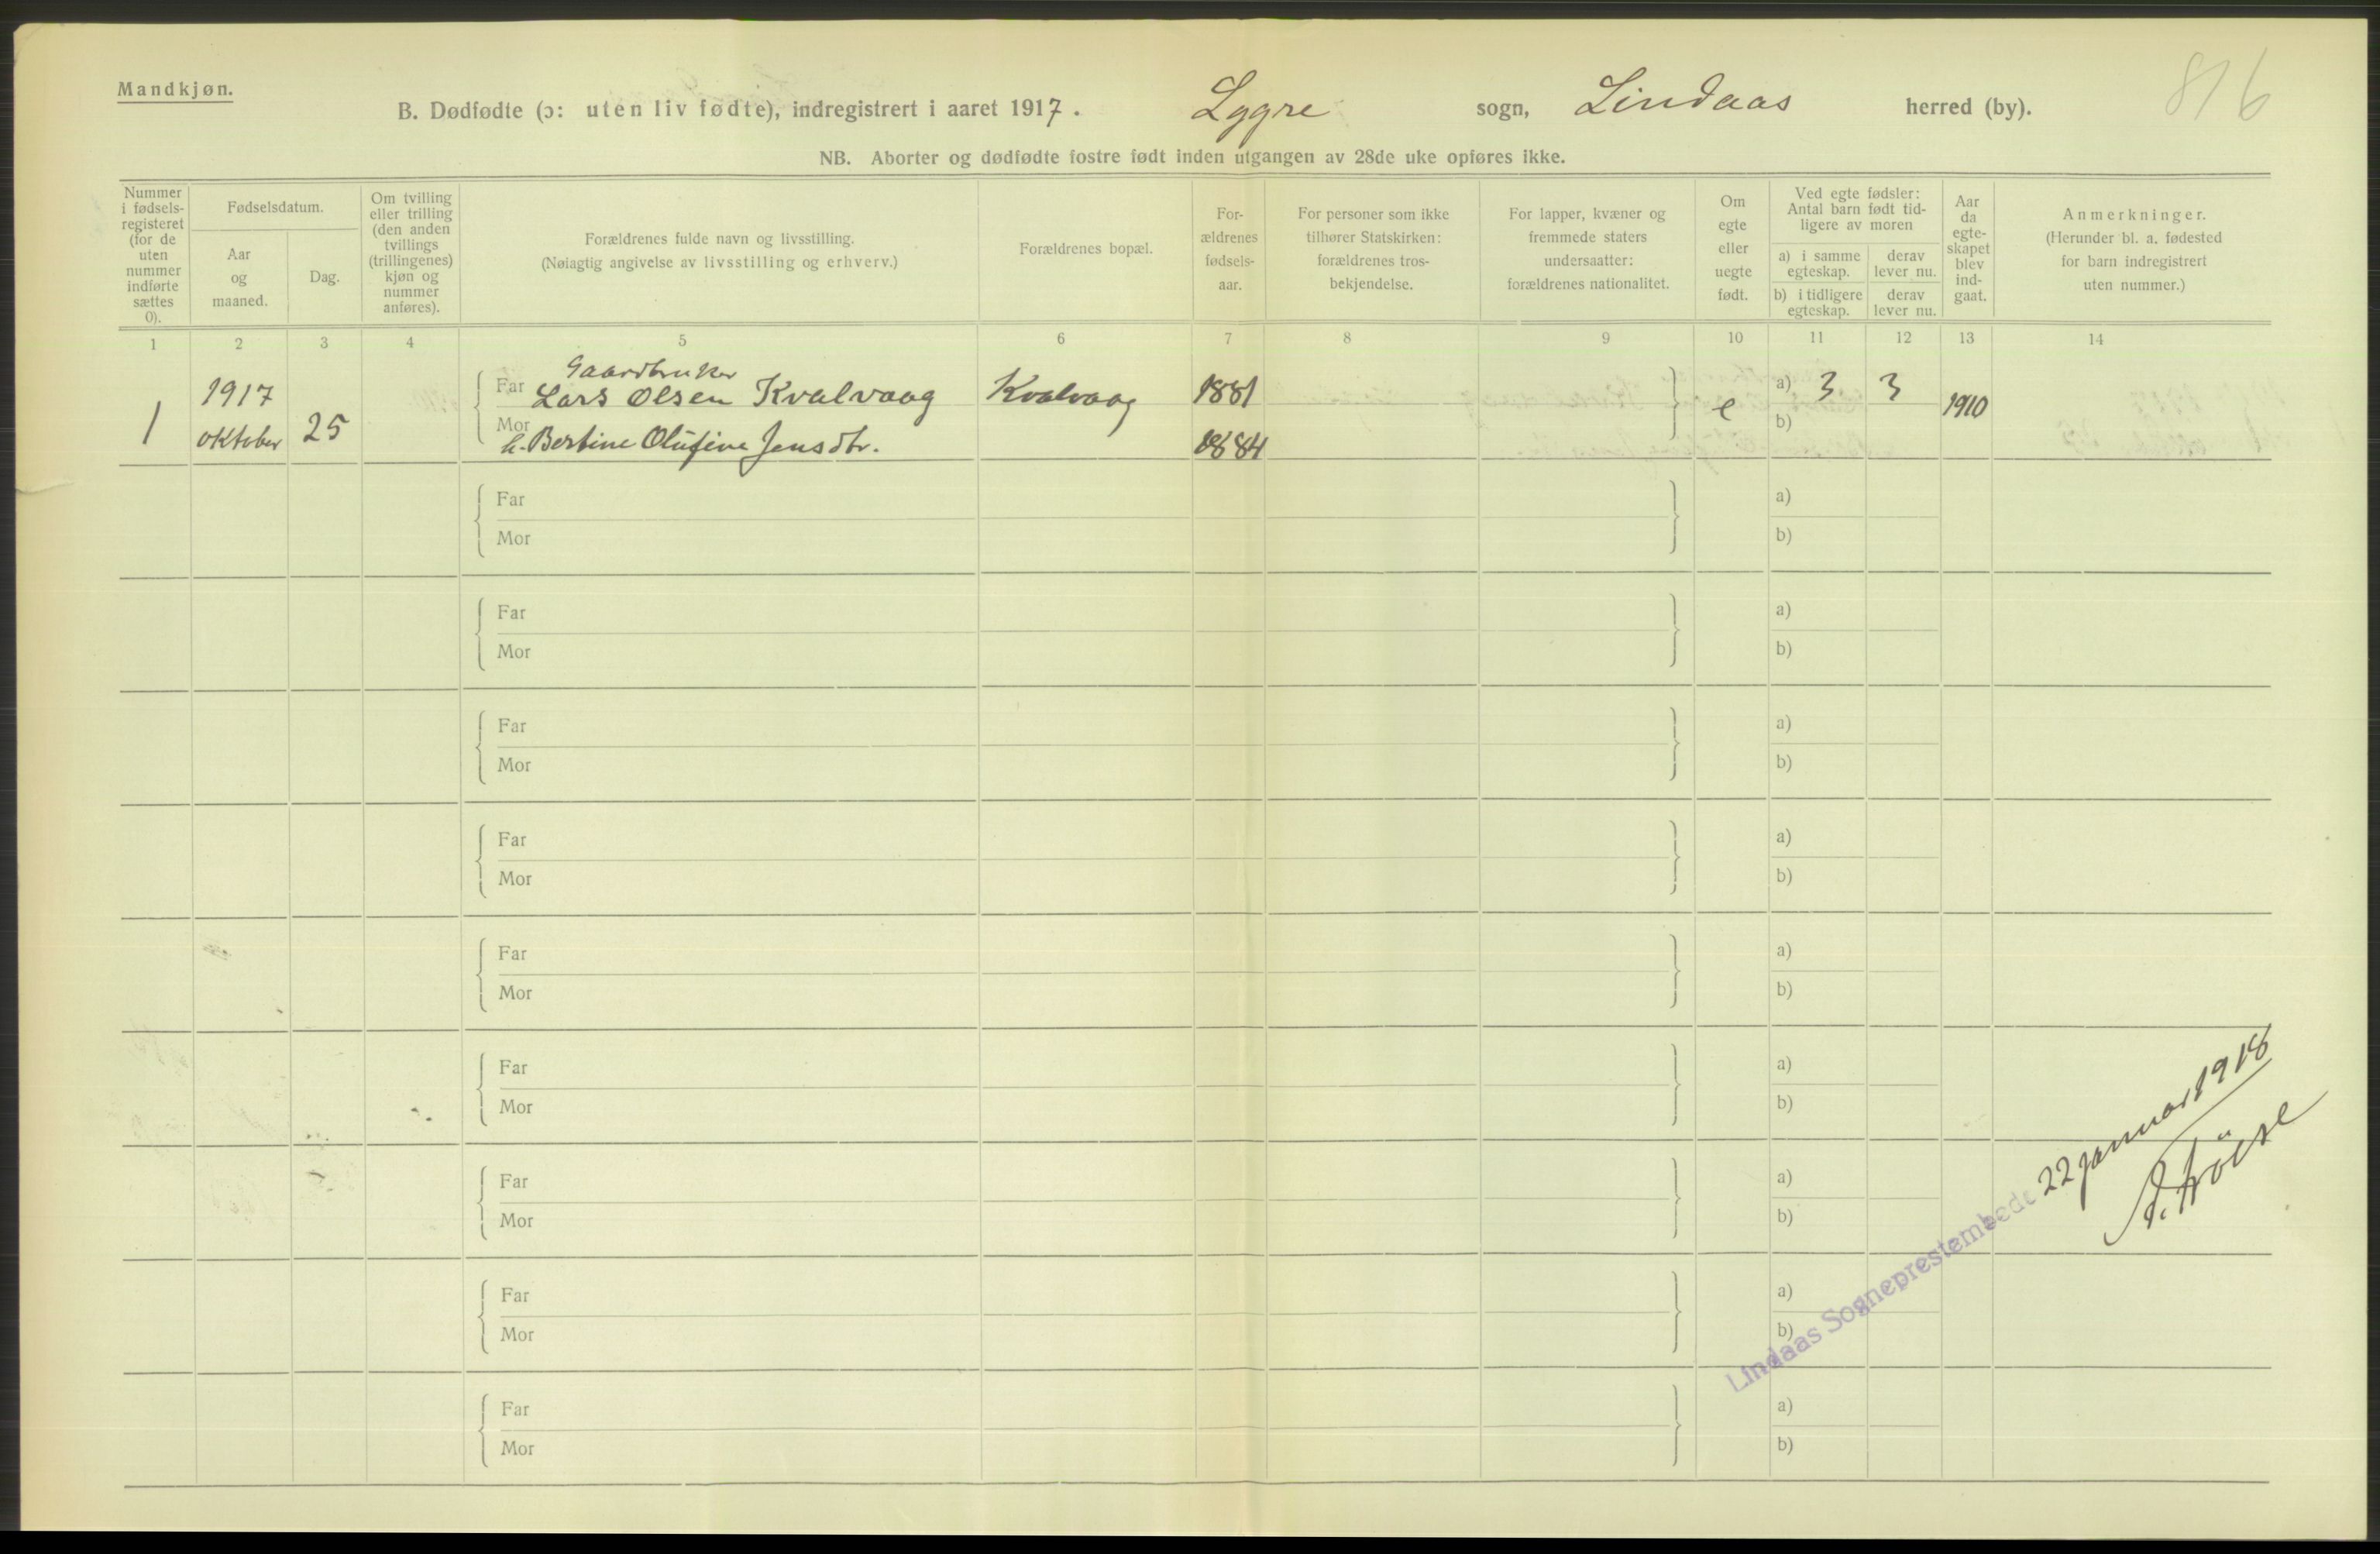 Mandkjøn.
816
B. Dødfødte (ɔ: uten liv fødte), indregistrert i aaret 1917. Lygre sogn, Lindaas herred (by).
NB. Aborter og dødfødte fostre født inden utgangen av 28de uke opføres ikke.
Nummer i fødsels-registeret (for de uten nummer indførte sættes 0).
Fødselsdatum.
Aar og maaned.
Dag.
Om tvilling eller trilling (den anden tvillings (trillingenes) kjøn og nummer anføres).
Forældrenes fulde navn og livsstilling.
(Nøiagtig angivelse av livsstilling og erhverv.)
Forældrenes bopæl.
For-ældrenes fødsels-aar.
For personer som ikke tilhører Statskirken: forældrenes tros-bekjendelse.
For lapper, kvæner og fremmede staters undersaatter: forældrenes nationalitet.
Om egte eller uegte født.
Ved egte fødsler: Antal barn født tid-ligere av moren
a) i samme egteskap.
derav lever nu.
b) i tidligere egteskap.
derav lever nu.
Aar da egte-skapet blev ind-gaat.
Anmerkninger.
(Herunder bl. a. fødested for barn indregistrert uten nummer.)
1 2 3 4 5 6 7 8 9 10 11 12 13 14
Gaardbruker
1917 Far Lars Olsen Kvalvaag Kvalvaag 1881 a) 3 3
1 oktober 25 e 1910
Mor h. Bertine Olufine Jensdtr. 1884 b)
Far a)
Mor b)
Far a)
Mor b)
Far a)
Mor b)
Far a)
Mor b)
Far a)
Mor b)
Far a)
Mor b)
Far a)
Mor b)
Far a)
Mor b)
Far a)
Mor b)
Lindaas Sogneprestembede 22 januar 1918